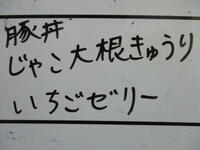 豚丼
じゃこ大根きゅうり
いちごゼリー